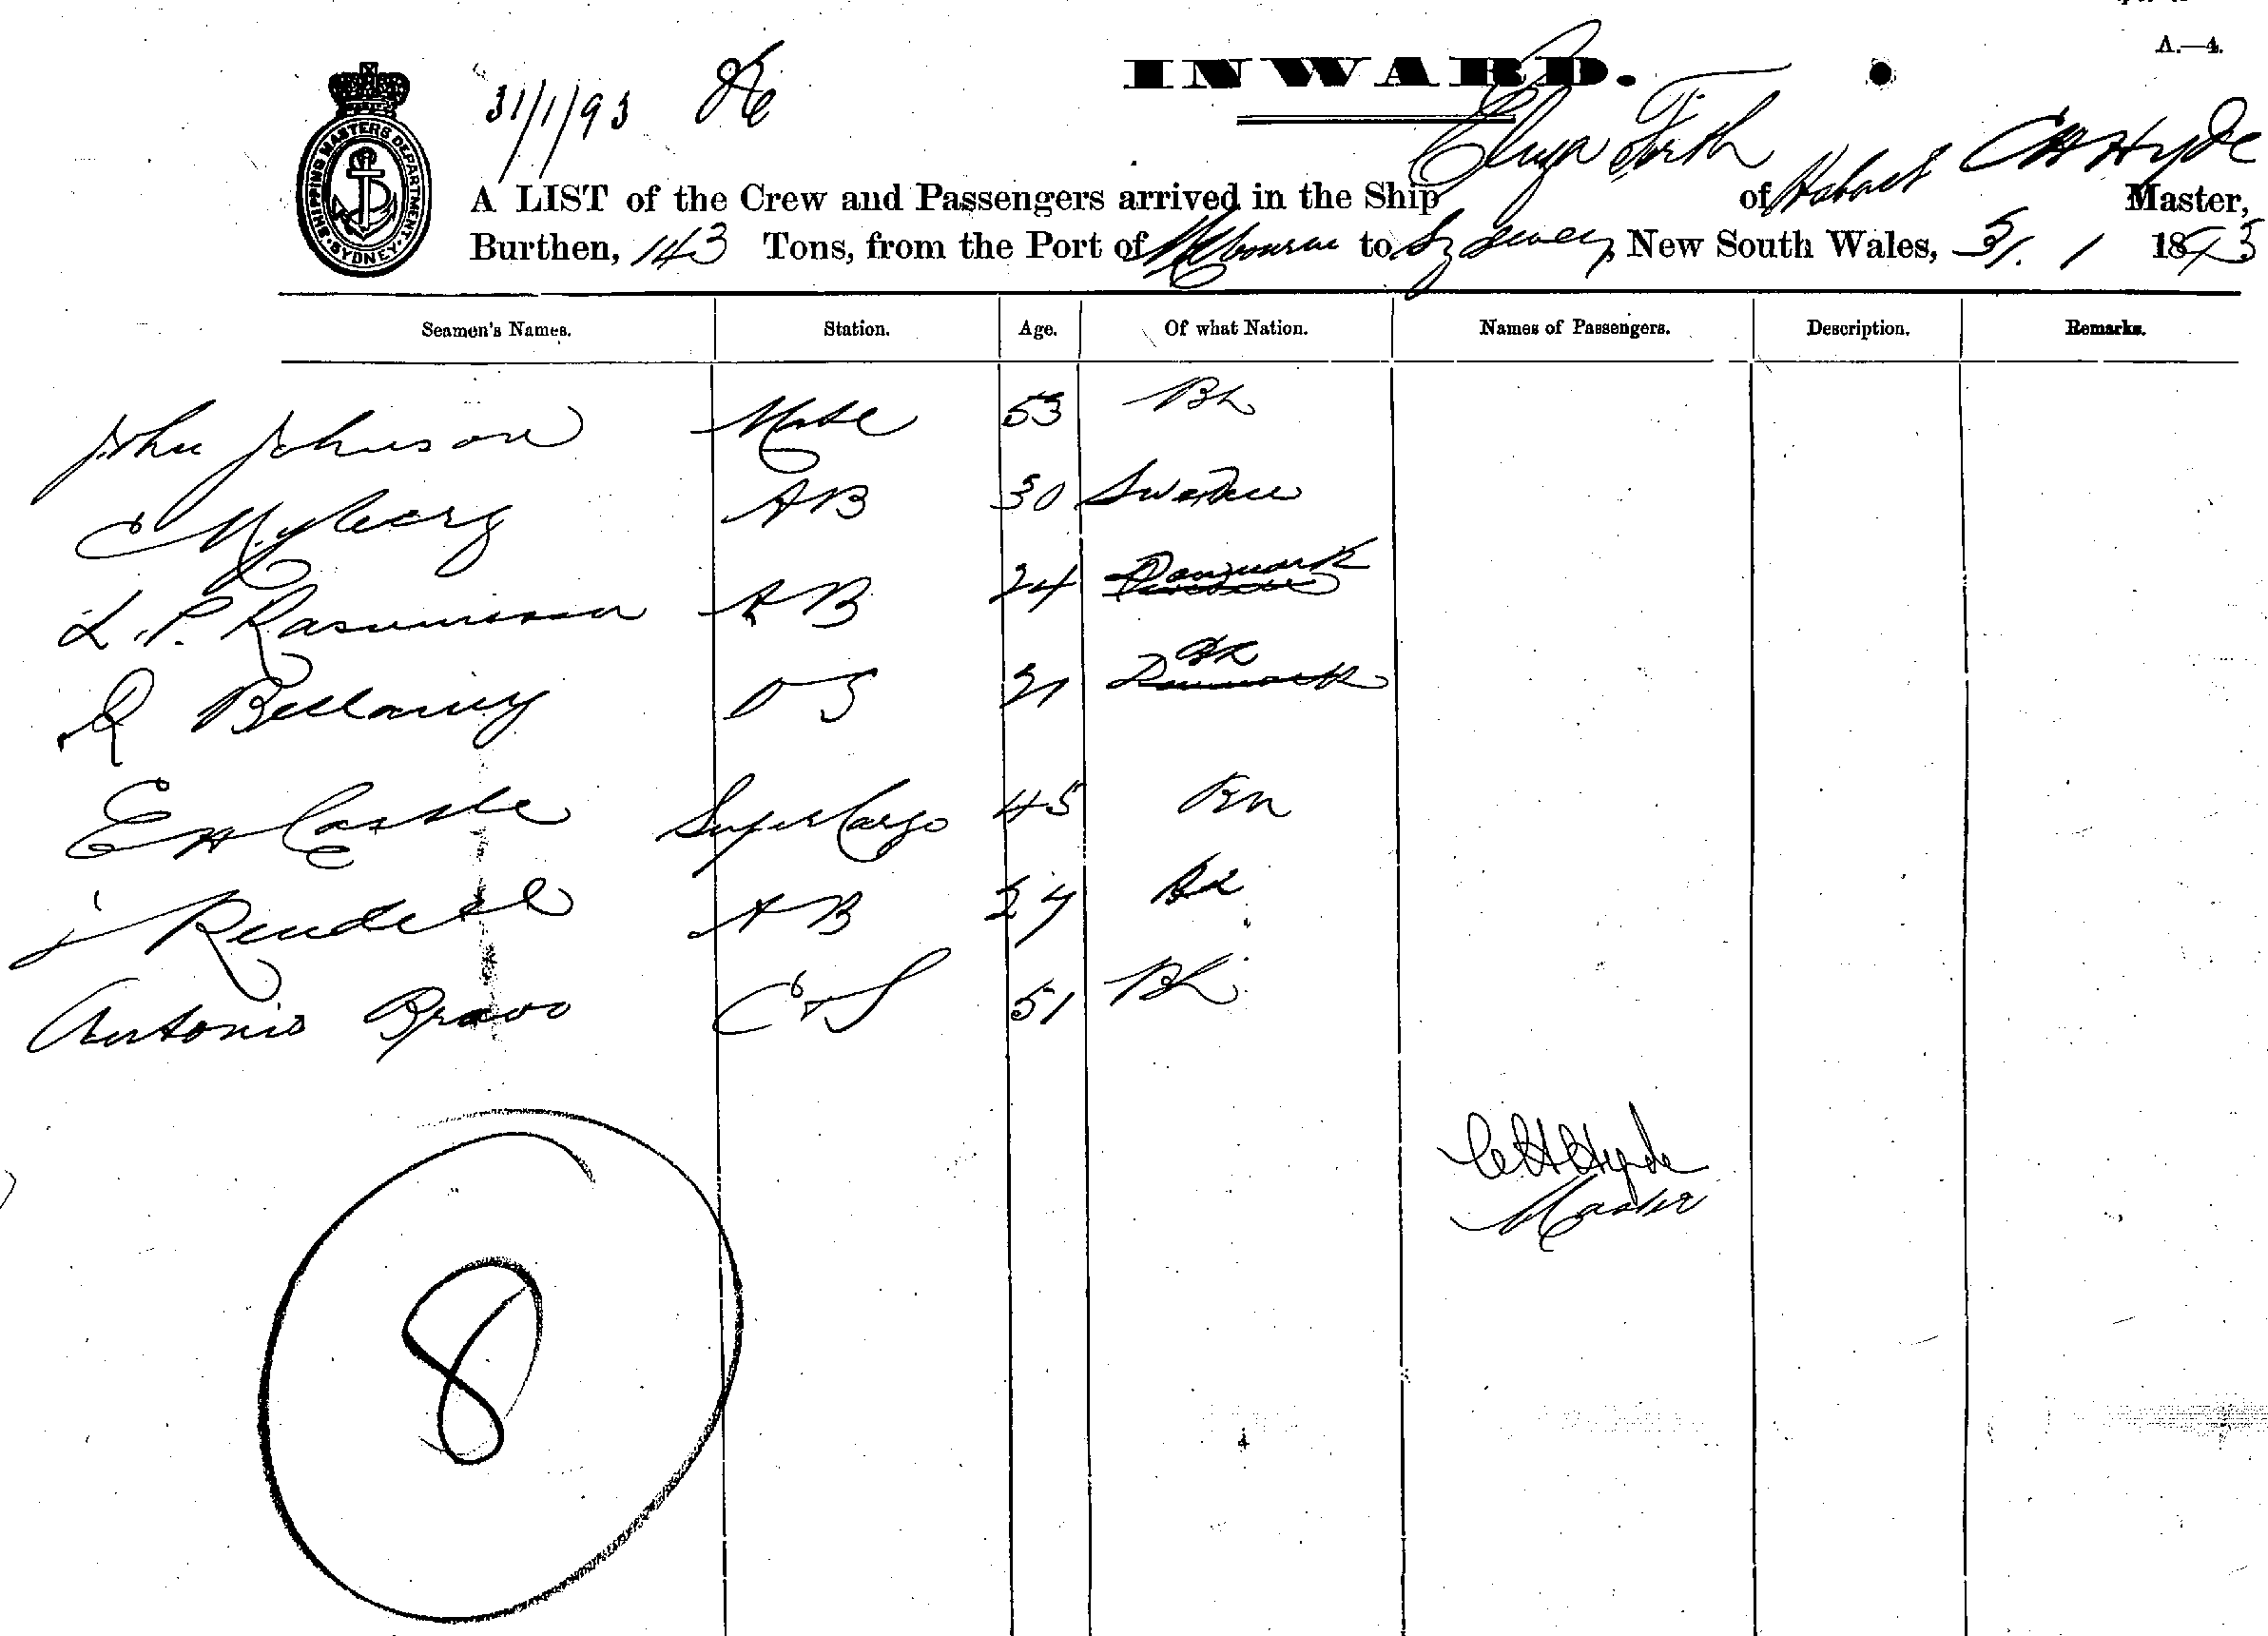 A.—4.
INWARD.
SHIPPING MASTERS DEPARTMENT SYDNEY
31/1/93
A LIST of the Crew and Passengers arrived in the Ship Eliza Firth of Hobart C H Hyde Master,
Burthen, 143 Tons, from the Port of Melbourne to Sydney New South Wales, 31. 1 1893
Seamen's Names. Station. Age. Of what Nation. Names of Passengers. Description. Remarks.
John Johnson Mate 53 Bh
C Nyberg AB 30 Sweden
L. P. Rasmussen AB 24 Danmark
R Bellamy OS 21 Bh Danmark
E H Castle Super Cargo 45 Bh
J Rendell AB 24 Bh
Antonio Bravo C & S 51 Bh
C H Hyde
Master
8